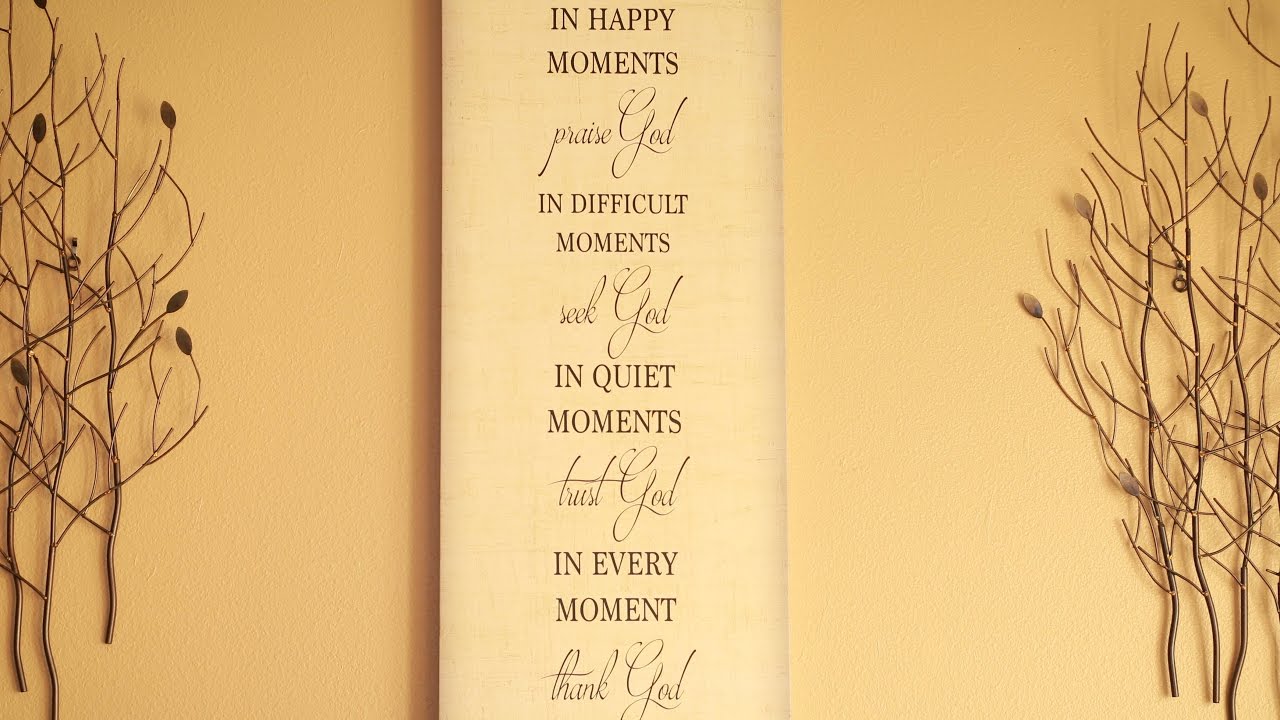 IN HAPPY
MOMENTS
praise God
IN DIFFICULT
MOMENTS
seek God
IN QUIET
MOMENTS
trust God
IN EVERY
MOMENT
thank God